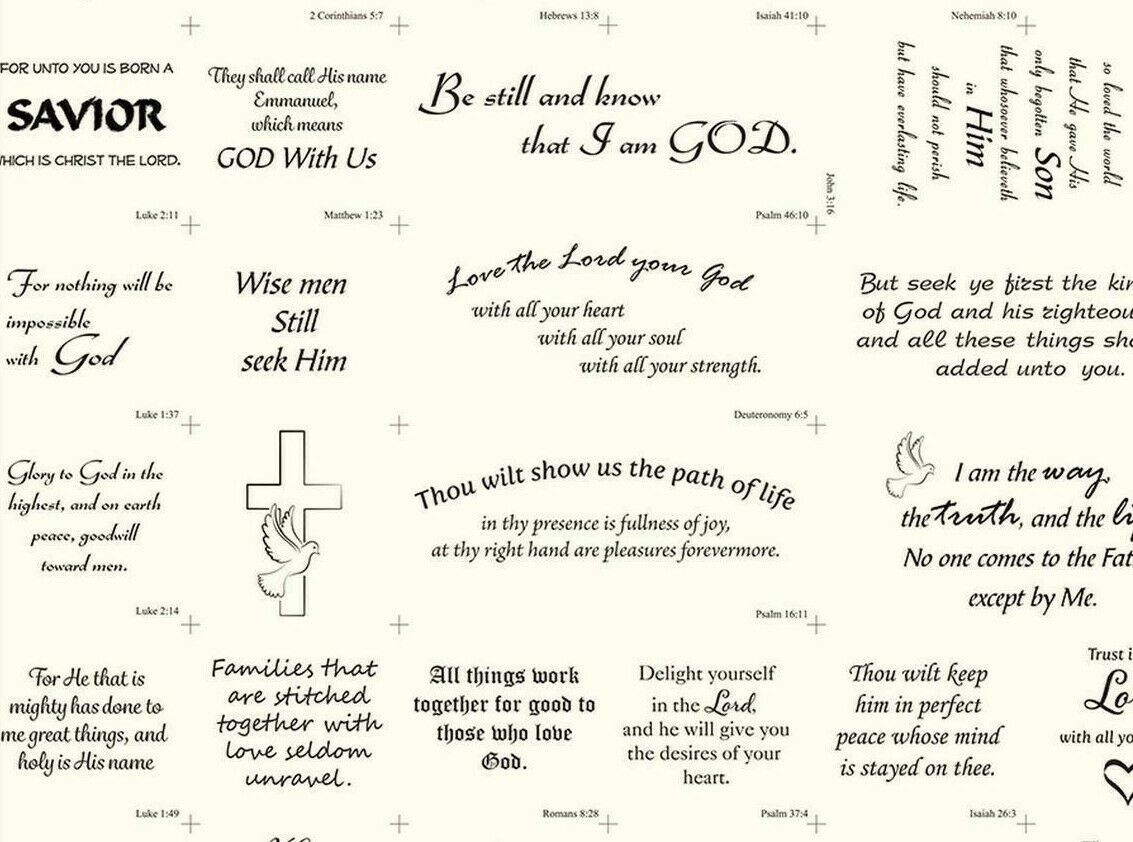 2 Corinthians 5:7
Hebrews 13:8
Isaiah 41:10
Nehemiah 8:10
FOR UNTO YOU IS BORN A
SAVIOR
WHICH IS CHRIST THE LORD.
Luke 2:11
They shall call His name
Emmanuel,
which means
GOD With Us
Matthew 1:23
Be still and know
that I am GOD.
Psalm 46:10
so loved the world
that He gave His
only begotten Son
that whosoever believeth
in Him
should not perish
but have everlasting life.
John 3:16
For nothing will be
impossible
with God
Luke 1:37
Wise men
Still
seek Him
Love the Lord your God
with all your heart
with all your soul
with all your strength.
Deuteronomy 6:5
But seek ye first the
of God and his
and all these things
added unto you.
Glory to God in the
highest, and on earth
peace, goodwill
toward men.
Luke 2:14
Thou wilt show us the path of life
in thy presence is fullness of joy,
at thy right hand are pleasures forevermore.
Psalm 16:11
I am the way,
the truth, and the
No one comes to the
except by Me.
For He that is
mighty has done to
me great things, and
holy is His name
Luke 1:49
Families that
are stitched
together with
love seldom
unravel.
All things work
together for good to
those who love
God.
Romans 8:28
Delight yourself
in the Lord,
and he will give you
the desires of your
heart.
Psalm 37:4
Thou wilt keep
him in perfect
peace whose mind
is stayed on thee.
Isaiah 26:3
Trust
with all